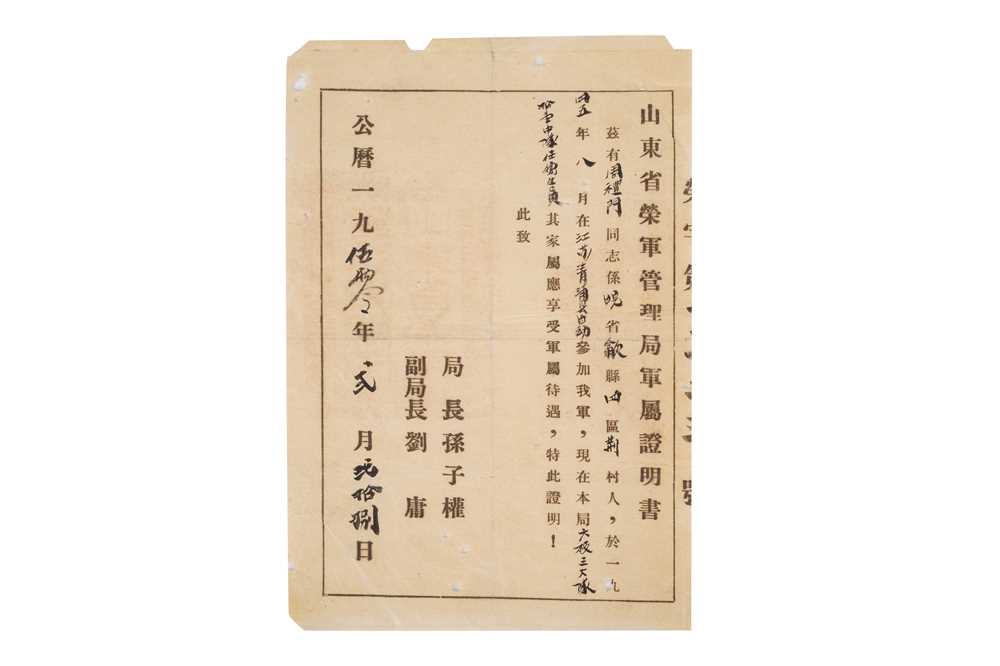 山東省榮軍管理局軍屬證明書
茲有周禮門同志係皖省歙縣四區荆村人，於一九
四五年八月在江苏青浦參加我軍，現在本局六校三大隊
拾壹中隊任衛生員其家屬應享受軍屬待遇，特此證明！
此致
局長孫子權
副局長劉庸
公曆一九伍零年貳月貳拾捌日